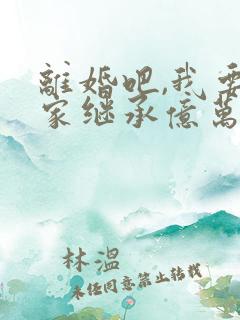 離婚吧,我要
家继承億萬
林溫
未任同意禁止轉载